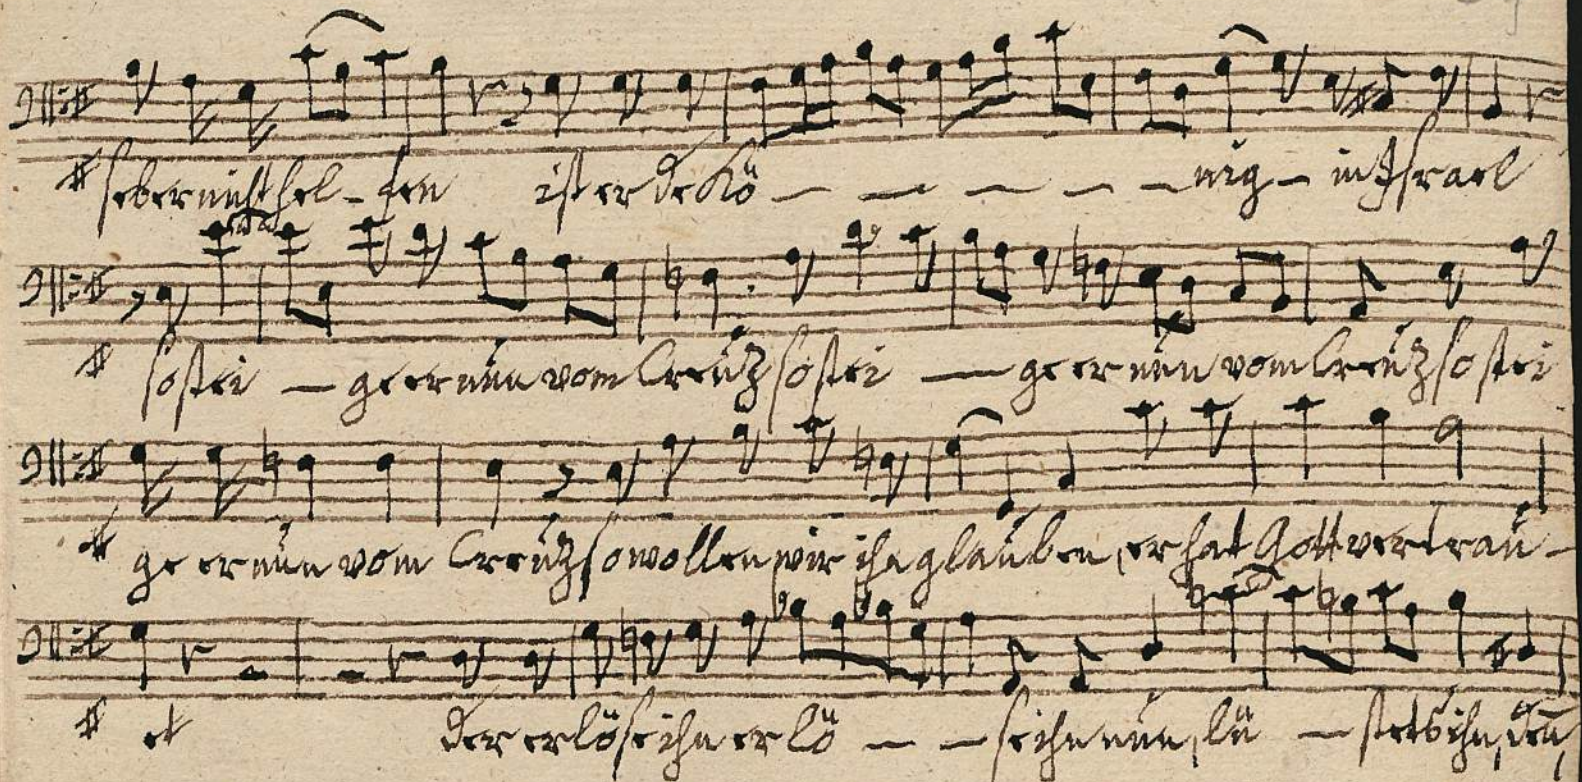 selber nicht hel - fen ist er der Kö - - - - - - nig - in Israel
so stei - ge er nun vom Creutz so stei - ge er nun vom Creutz so stei
ge er nun vom Creutz so wollen wir ihn glauben, er hat Gott vertrau -
et der erlöse ihn er lö - - se ihn nun, lü - stets ihn,